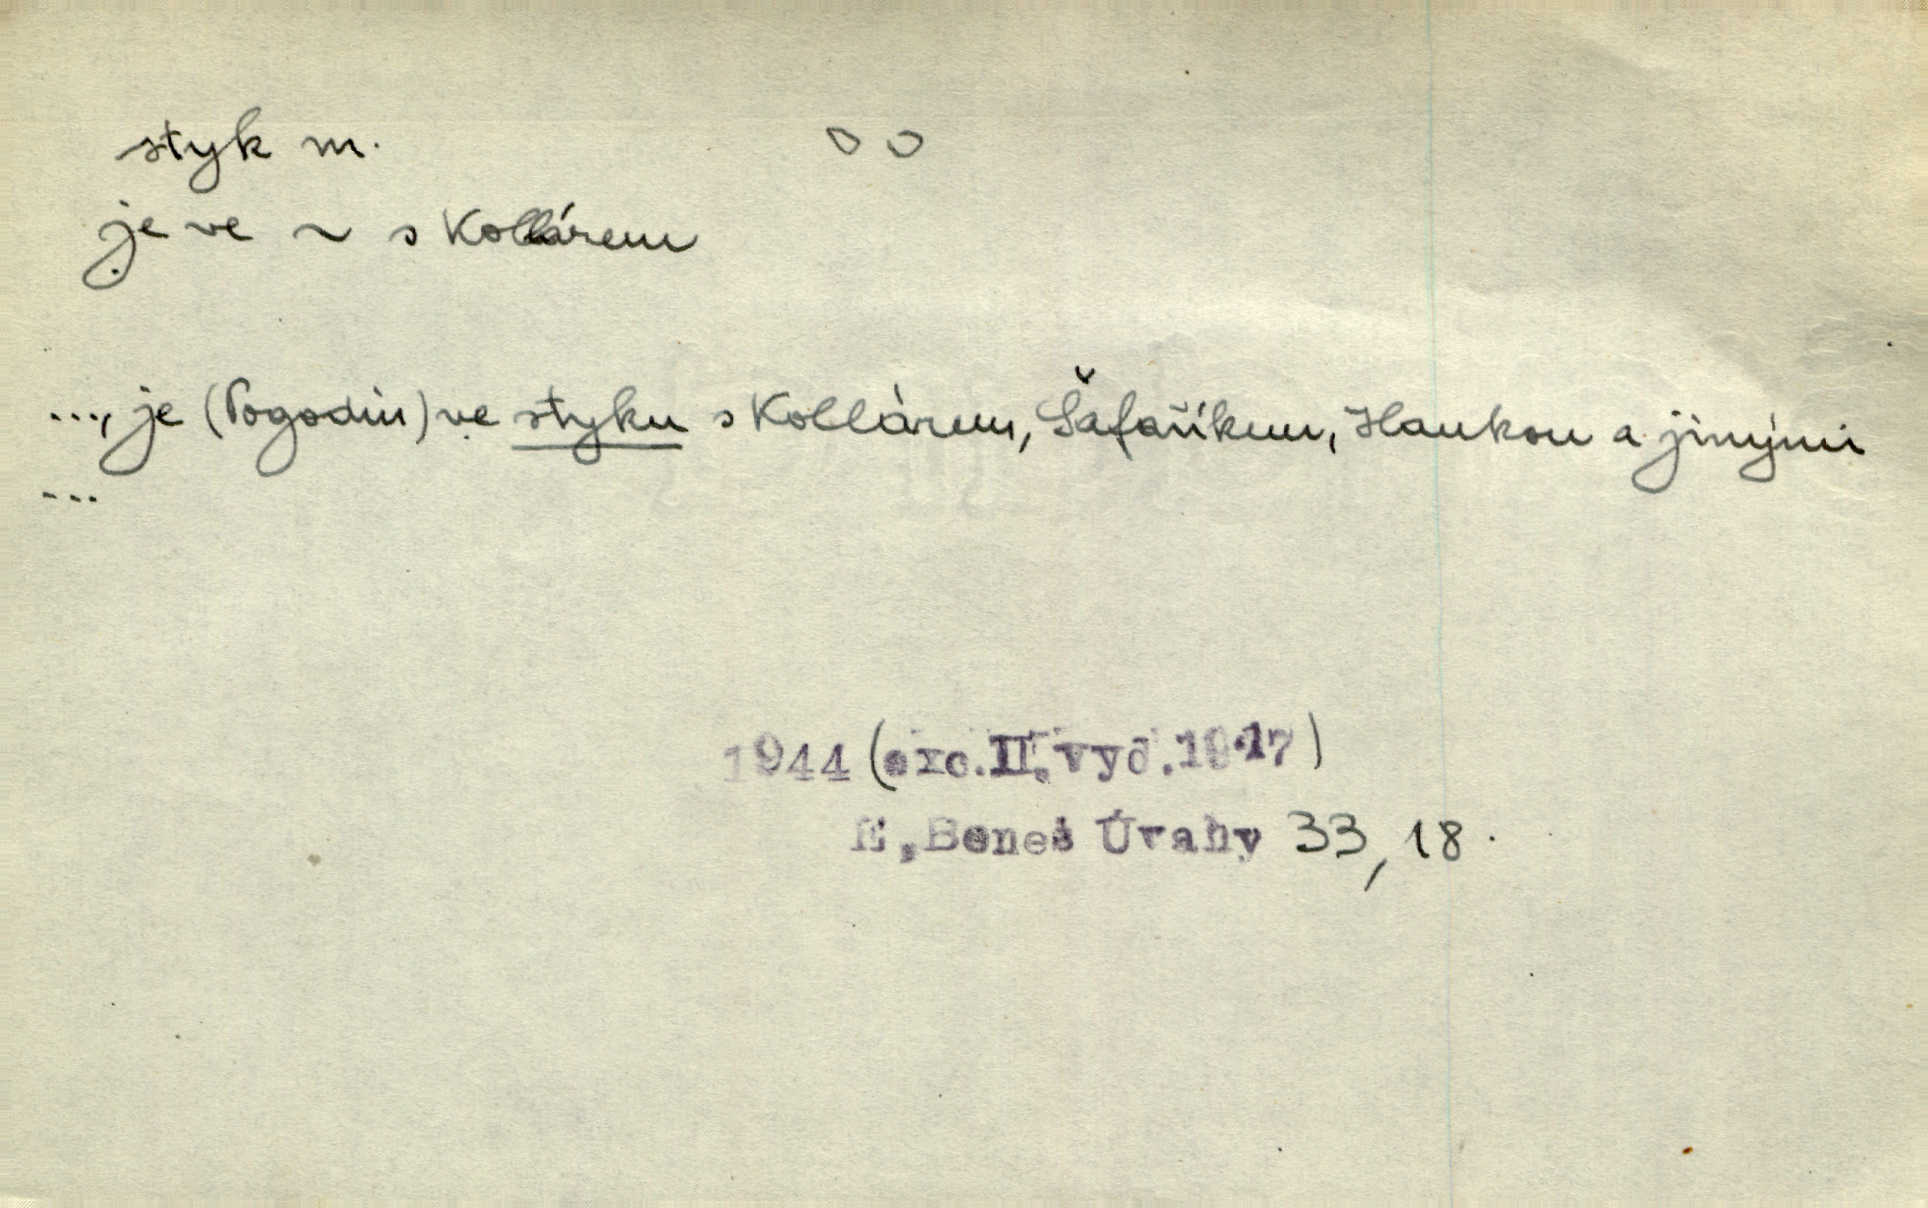 styk m.
je ve ~ s Kollárem
..., je (Pogodin) ve styku s Kollárem, Šafaříkem, Hankou a jinými
...
1944 (exc. II. vyd. 1947)
E. Beneš Úvahy 33, 18.